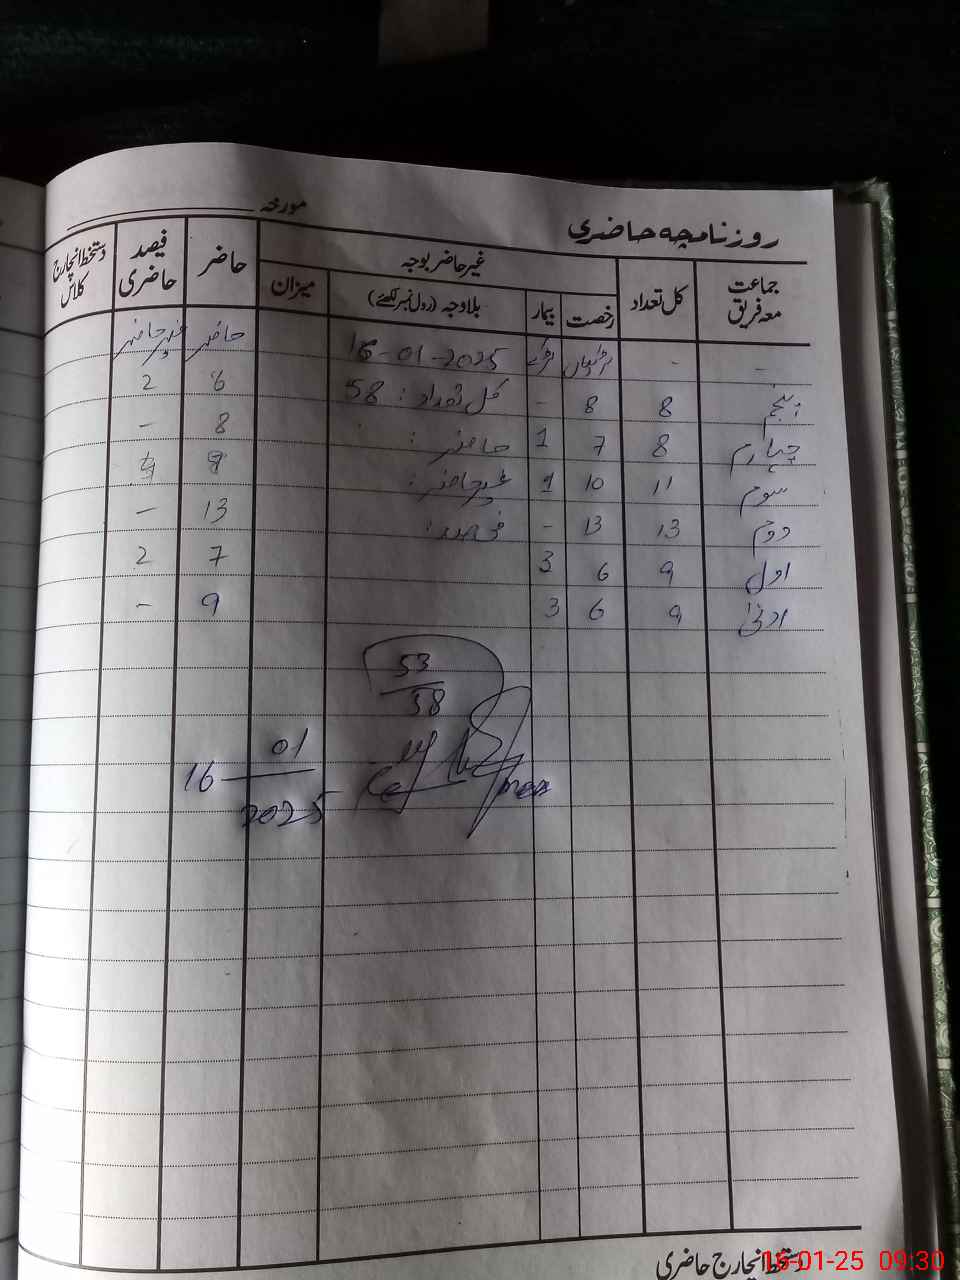 مورخہ
روزنامچہ حاضری
جماعت معہ فریق کل تعداد غیر حاضر بوجہ حاضر فیصد حاضری دستخط انچارج کلاس
رخصت بیمار بلاوجہ (رول نمبر لکھئے) میزان
- - لڑکیاں لڑکے 16-01-2025 حاضر غیر حاضر
پنجم 8 8 - کل تعداد : 58 6 2
چہارم 8 7 1 حاضر : 8 -
سوم 11 10 1 غیر حاضر :
دوم 13 13 - فی صد : 13 -
اول 9 6 3 7 2
ادنیٰ 9 6 3 9 -
53
58
16 01
2025
دستخط انچارج حاضری
16-01-25 09:30